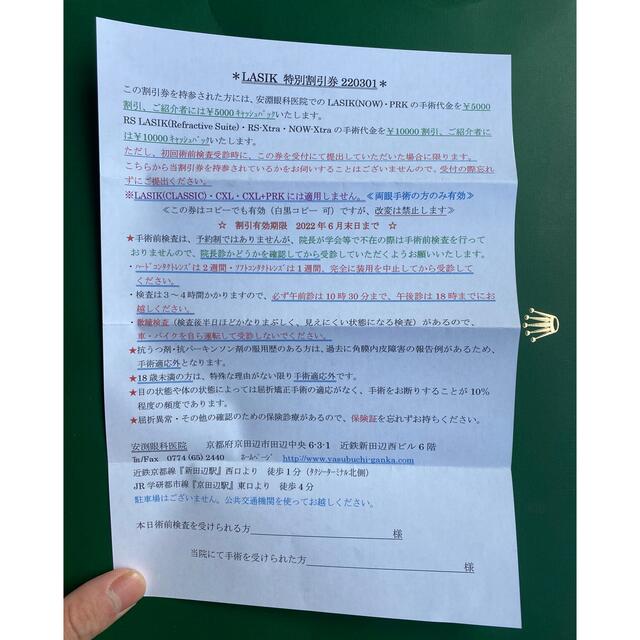 ＊LASIK 特別割引券 220301＊
この割引券を持参された方には、安淵眼科医院での LASIK(NOW)・PRK の手術代金を￥5000
割引、ご紹介者には￥5000ｷｬｯｼｭﾊﾞｯｸいたします。
RS LASIK(Refractive Suite)・RS-Xtra・NOW-Xtra の手術代金を￥10000 割引、ご紹介者に
は￥10000ｷｬｯｼｭﾊﾞｯｸいたします。
ただし、初回術前検査受診時に、この券を受付にて提出していただいた場合に限ります。
こちらから当割引券を持参されているかをお伺いすることはございませんので、受付の際忘れ
ずにご提出ください。
※LASIK(CLASSIC)・CXL・CXL+PRK には適用しません。≪両眼手術の方のみ有効≫
≪この券はコピーでも有効（白黒コピー 可）ですが、改変は禁止します≫
☆ 割引有効期限 2022 年 6 月末日まで ☆
★手術前検査は、予約制ではありませんが、院長が学会等で不在の際は手術前検査を行って
おりませんので、院長診かどうかを確認してから受診していただくようお願いいたします。
・ﾊｰﾄﾞｺﾝﾀｸﾄﾚﾝｽﾞは 2 週間・ｿﾌﾄｺﾝﾀｸﾄﾚﾝｽﾞは 1 週間、完全に装用を中止してから受診して
ください。
・検査は 3～4 時間かかりますので、必ず午前診は 10 時 30 分まで、午後診は 18 時までにお
越しください。
・散瞳検査（検査後半日ほどかなりまぶしく、見えにくい状態になる検査）があるので、
車・バイクを自ら運転して受診しないでください。
★抗うつ剤・抗パーキンソン剤の服用歴のある方は、過去に角膜内皮障害の報告例があるため、
手術適応外となります。
★18 歳未満の方は、特殊な理由がない限り手術適応外です。
★目の状態や体の状態によっては屈折矯正手術の適応がなく、手術をお断りすることが 10%
程度の頻度であります。
★屈折異常・その他の確認のための保険診療があるので、保険証を忘れずお持ちください。
安渕眼科医院 京都府京田辺市田辺中央 6-3-1 近鉄新田辺西ビル 6 階
℡/Fax 0774 (65) 2440 ﾎｰﾑﾍﾟｰｼﾞ http://www.yasubuchi-ganka.com
近鉄京都線『新田辺駅』西口より 徒歩 1 分（ﾀｸｼｰﾀｰﾐﾅﾙ北側）
JR 学研都市線『京田辺駅』東口より 徒歩 4 分
駐車場はございません。公共交通機関を使ってお越しください。
本日術前検査を受けられる方 様
当院にて手術を受けられた方 様